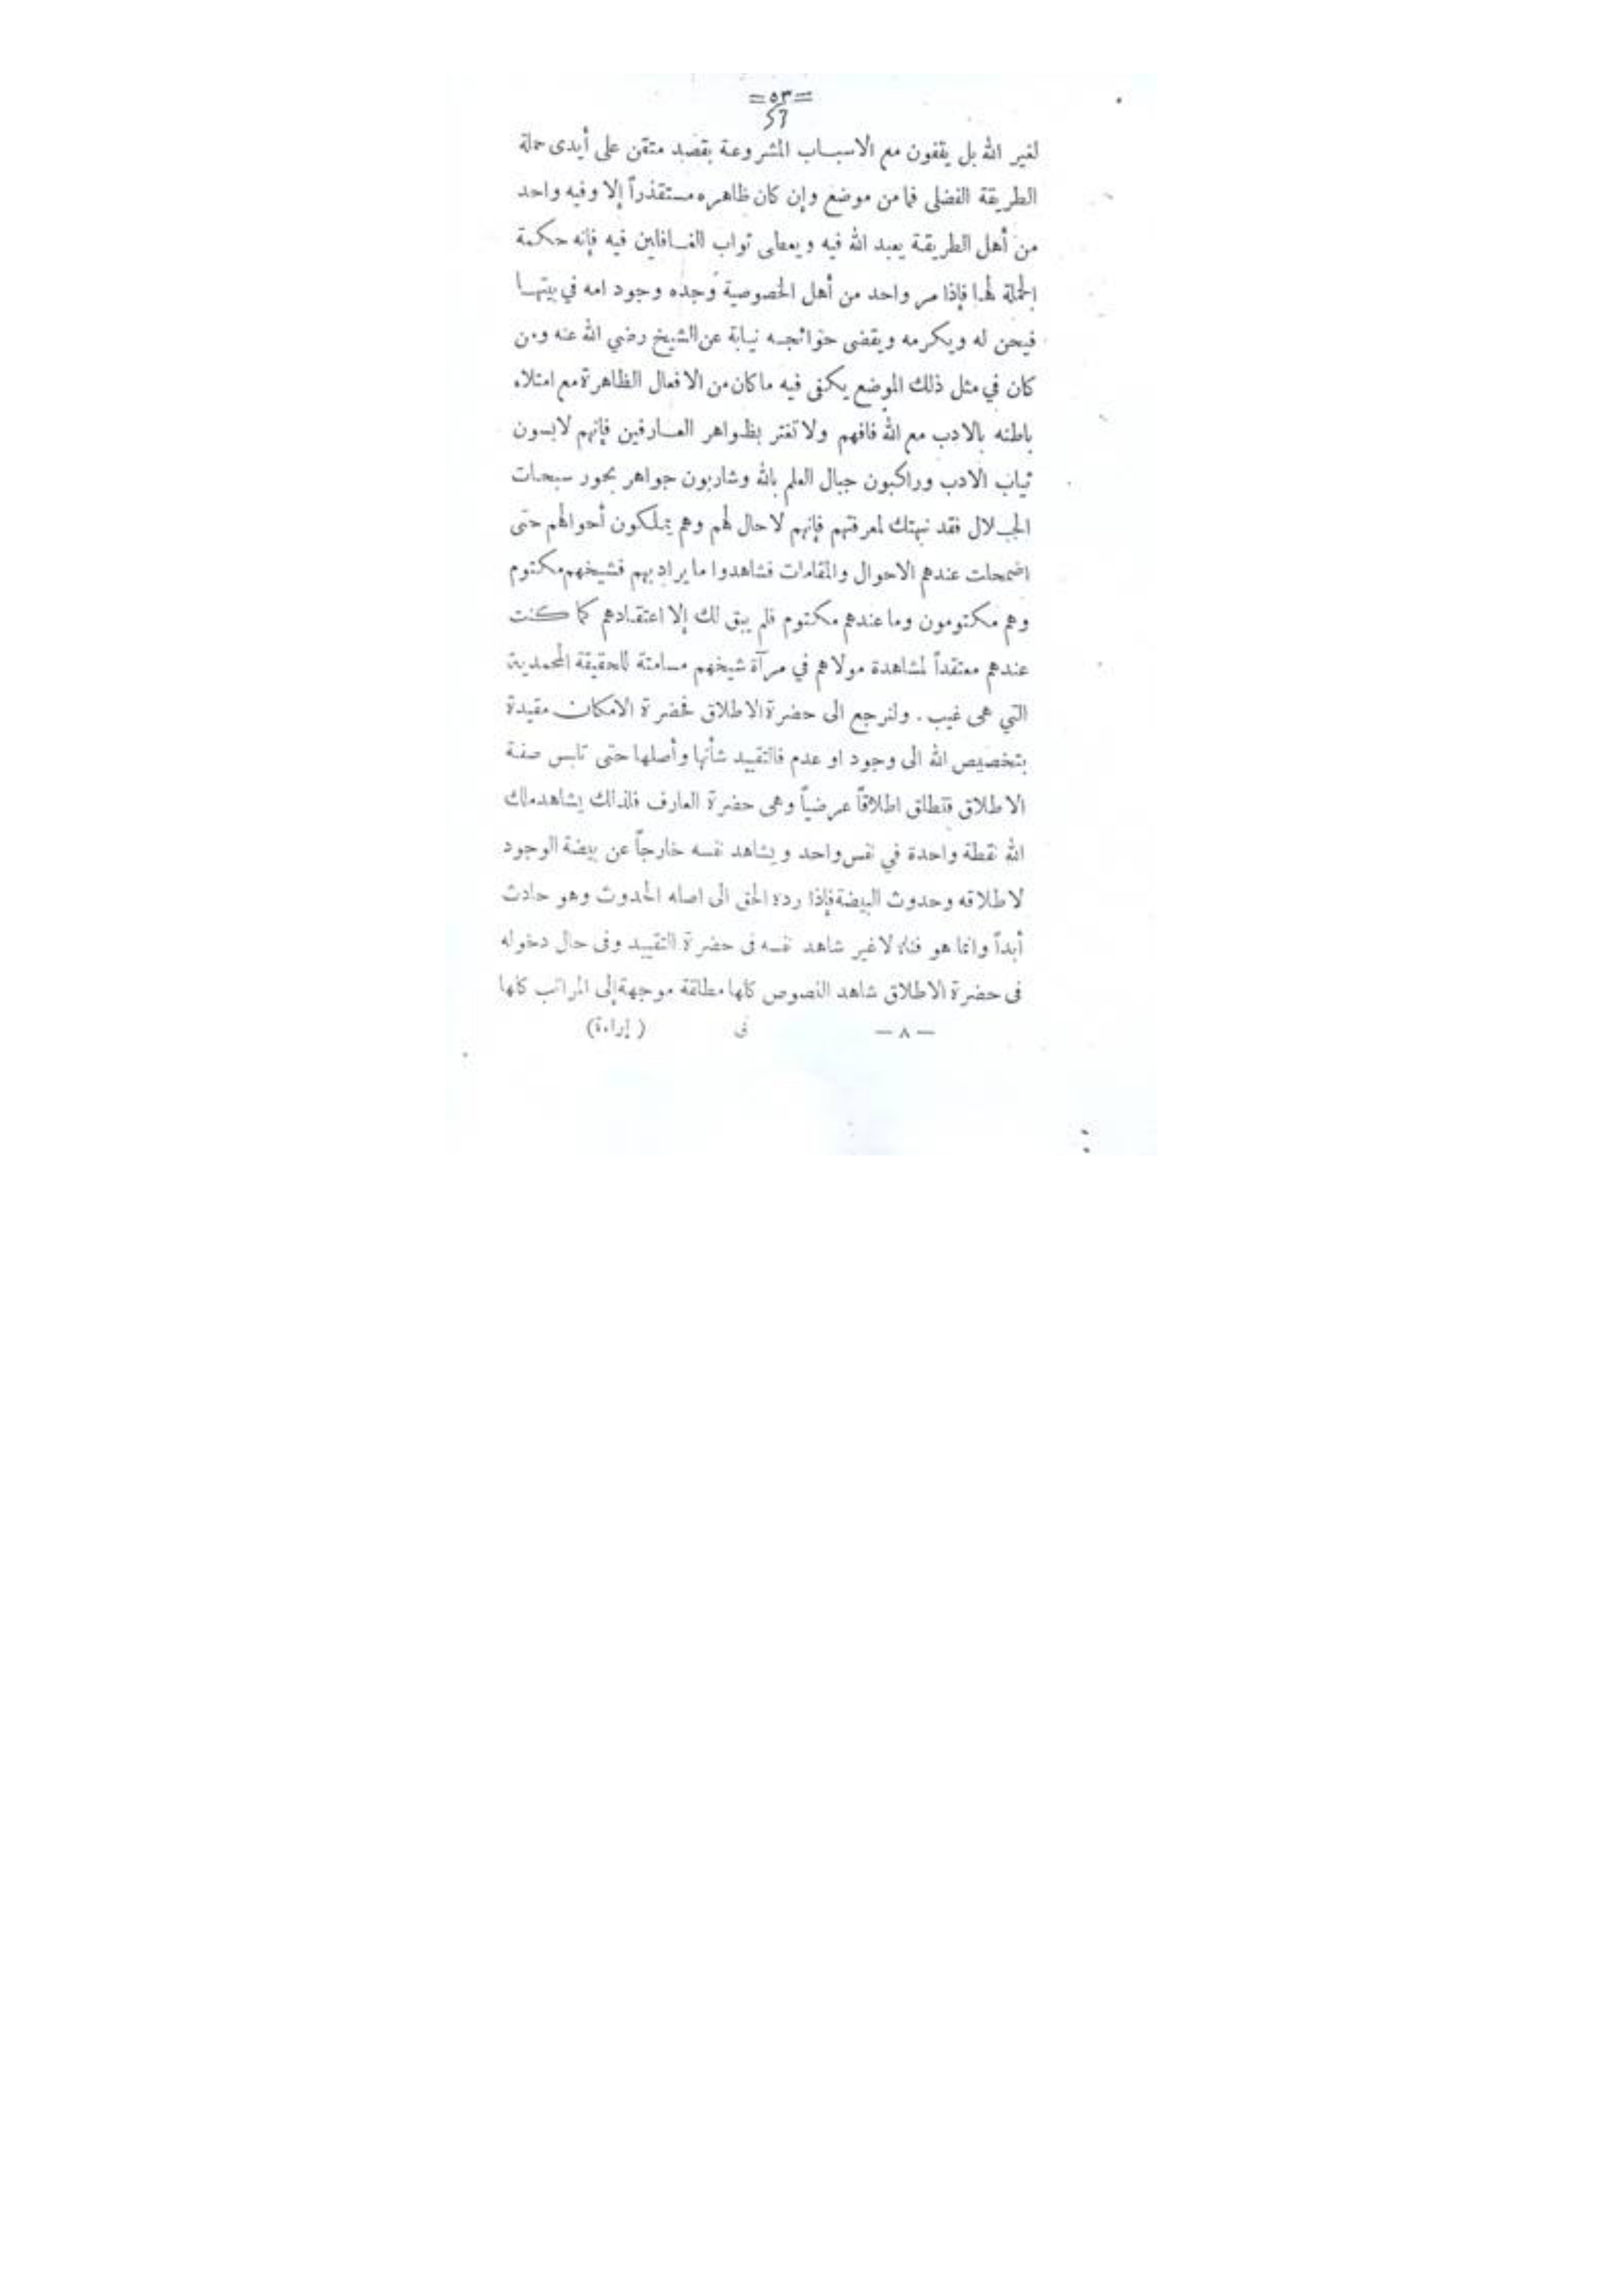 =٥٣=
53
لغير الله بل يقفون مع الاسباب المشروعة بقصد متقن على أيدى حملة
الطريقة الفضلى فما من موضع وإن كان ظاهره مستقذراً إلا وفيه واحد
من أهل الطريقة يعبد الله فيه ويعطى ثواب الغافلين فيه فإنه حكمة
الجملة لهما فإذا مر واحد من أهل الخصوصية وجده وجود امه في بيتها
فيحن له ويكرمه ويقضى حوائجه نيابة عن الشيخ رضي الله عنه ومن
كان في مثل ذلك الموضع يكفى فيه ما كان من الافعال الظاهرة مع امتلاء
باطنه بالادب مع الله فافهم ولا تغتر بظواهر العارفين فإنهم لابسون
ثياب الادب وراكبون جبال العلم بالله وشاربون جواهر بحور سبحات
الجلال فقد نبهتك لمعرفتهم فإنهم لا حال لهم وهم يملكون أحوالهم حتى
اضمحلت عندهم الاحوال والمقامات فشاهدوا ما يراد بهم فشيخهم مكتوم
وهم مكتومون وما عندهم مكتوم فلم يبق لك إلا اعتقادهم كما كنت
عندهم معتقداً لمشاهدة مولاهم في مرآة شيخهم مسامتة للحقيقة المحمدية
التي هى غيب . ولنرجع الى حضرة الاطلاق فحضرة الامكان مقيدة
بتخصيص الله الى وجود او عدم فالتقييد شأنها وأصلها حتى تلبس صفة
الاطلاق فتطلق اطلاقاً عرضياً وهى حضرة العارف فلذلك يشاهد ملك
الله نقطة واحدة في نفس واحد ويشاهد نفسه خارجاً عن بيضة الوجود
لاطلاقه وحدوث البيضة فإذا رده الحق الى اصله الحدوث وهو حادث
أبداً وانما هو فناء لا غير شاهد نفسه فى حضرة التقييد وفى حال دخوله
فى حضرة الاطلاق شاهد النصوص كلها مطلقة موجهة إلى المراتب كلها
— ٨ — فى (إراءة)